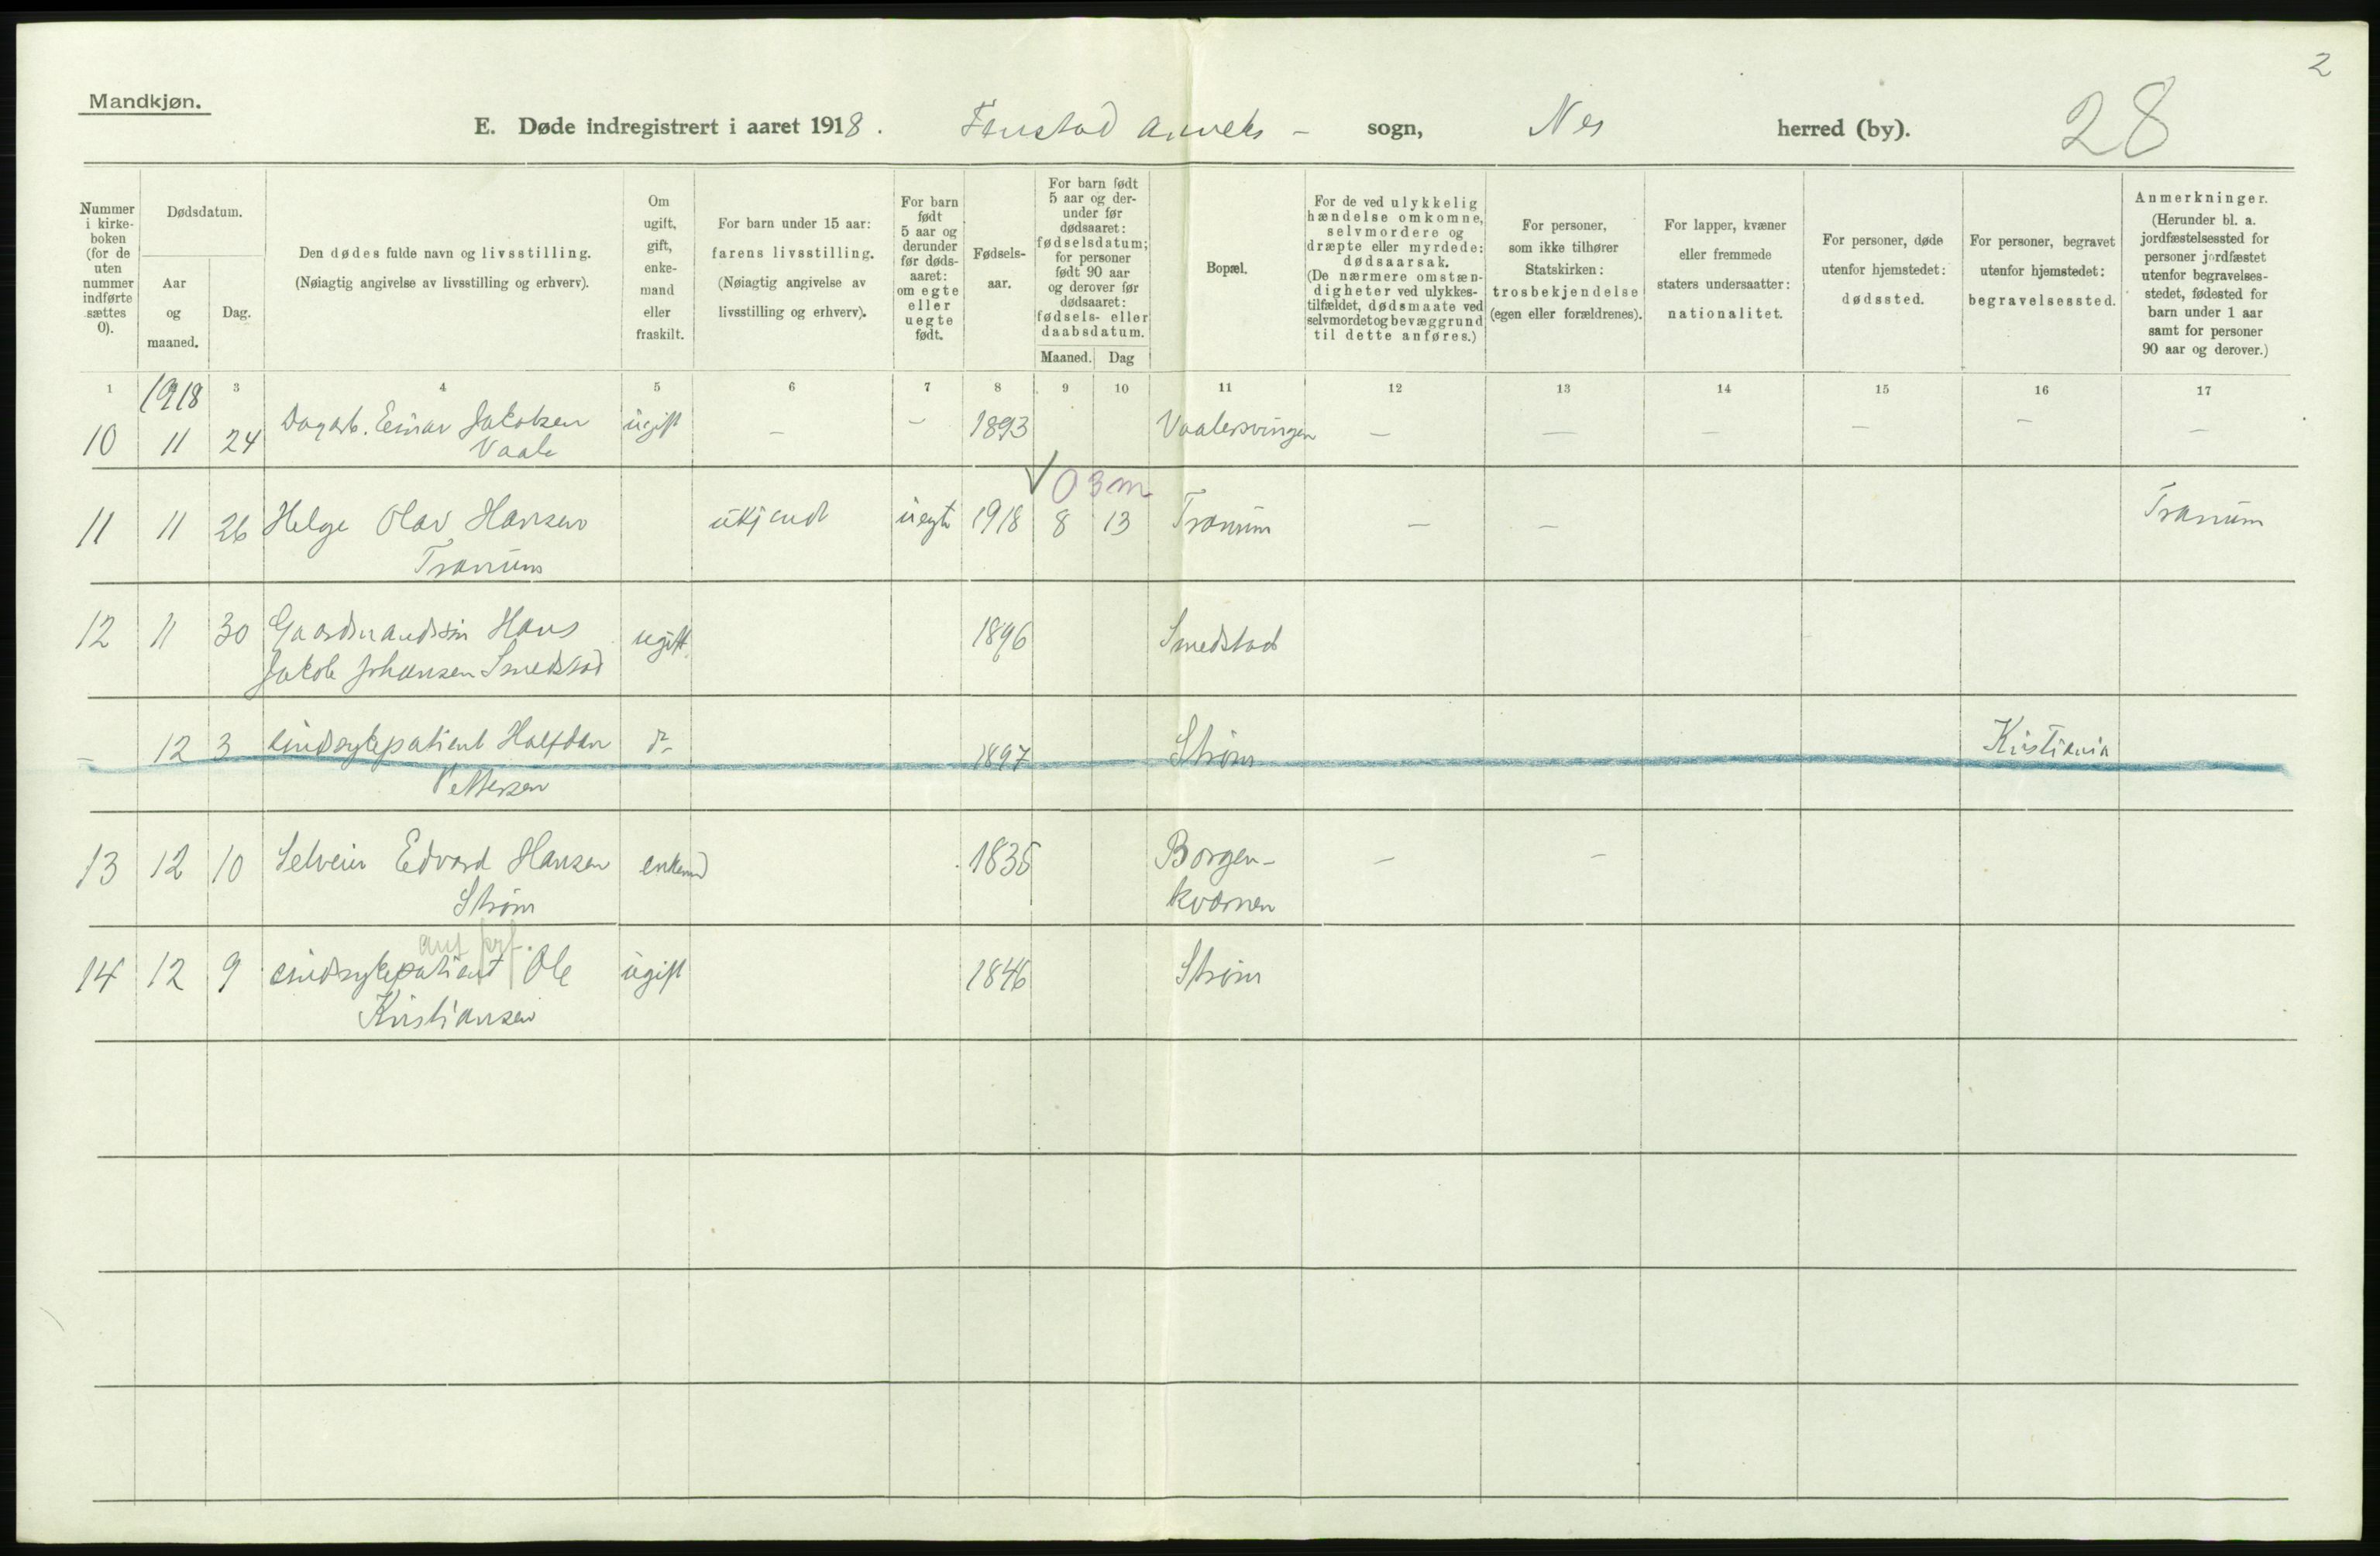 2
Mandkjøn.
E. Døde indregistrert i aaret 1918. Fenstad anneks - sogn, Nes herred (by). 28
Nummer i kirkeboken (for de uten nummer indførte sættes 0).
Dødsdatum.
Aar og maaned.
Dag.
Den dødes fulde navn og livsstilling.
(Nøiagtig angivelse av livsstilling og erhverv).
Om ugift, gift, enkemand eller fraskilt.
For barn under 15 aar:
farens livsstilling.
(Nøiagtig angivelse av livsstilling og erhverv).
For barn født 5 aar og derunder før dødsaaret: om egte eller uegte født.
Fødselsaar.
For barn født 5 aar og derunder før dødsaaret: fødselsdatum; for personer født 90 aar og derover før dødsaaret: fødsels- eller daabsdatum.
Maaned. Dag
Bopæl.
For de ved ulykkelig hændelse omkomne, selvmordere og dræpte eller myrdede: dødsaarsak.
(De nærmere omstændigheter ved ulykkestilfældet, dødsmaate ved selvmordet og bevæggrund til dette anføres.)
For personer, som ikke tilhører Statskirken: trosbekjendelse (egen eller forældrenes).
For lapper, kvæner eller fremmede staters undersaatter: nationalitet.
For personer, døde utenfor hjemstedet: dødssted.
For personer, begravet utenfor hjemstedet: begravelsessted.
Anmerkninger.
(Herunder bl. a. jordfæstelsessted for personer jordfæstet utenfor begravelsesstedet, fødested for barn under 1 aar samt for personer 90 aar og derover.)
1 3 4 5 6 7 8 9 10 11 12 13 14 15 16 17
1918
10 11 24 Dagarb. Einar Jakobsen ugift - - 1893 Vaalersvingen - - - - - -
Vaale
0 3 m
11 11 26 Helge Olav Hansen ukjendt uegte 1918 8 13 Tranum - - Tranum
Tranum
12 11 30 Gaardmandssøn Hans ugift 1896 Smedstad
Jakob Johansen Smedstad
- 12 3 sindssykepatient Halfdan do 1897 Strøm Kristiania
Pettersen
13 12 10 Selveier Edvard Hansen enkemd 1835 Borgen- - -
Strøm kværnen
14 12 9 sindssykepatient Ole ugift 1846 Strøm
Kristiansen